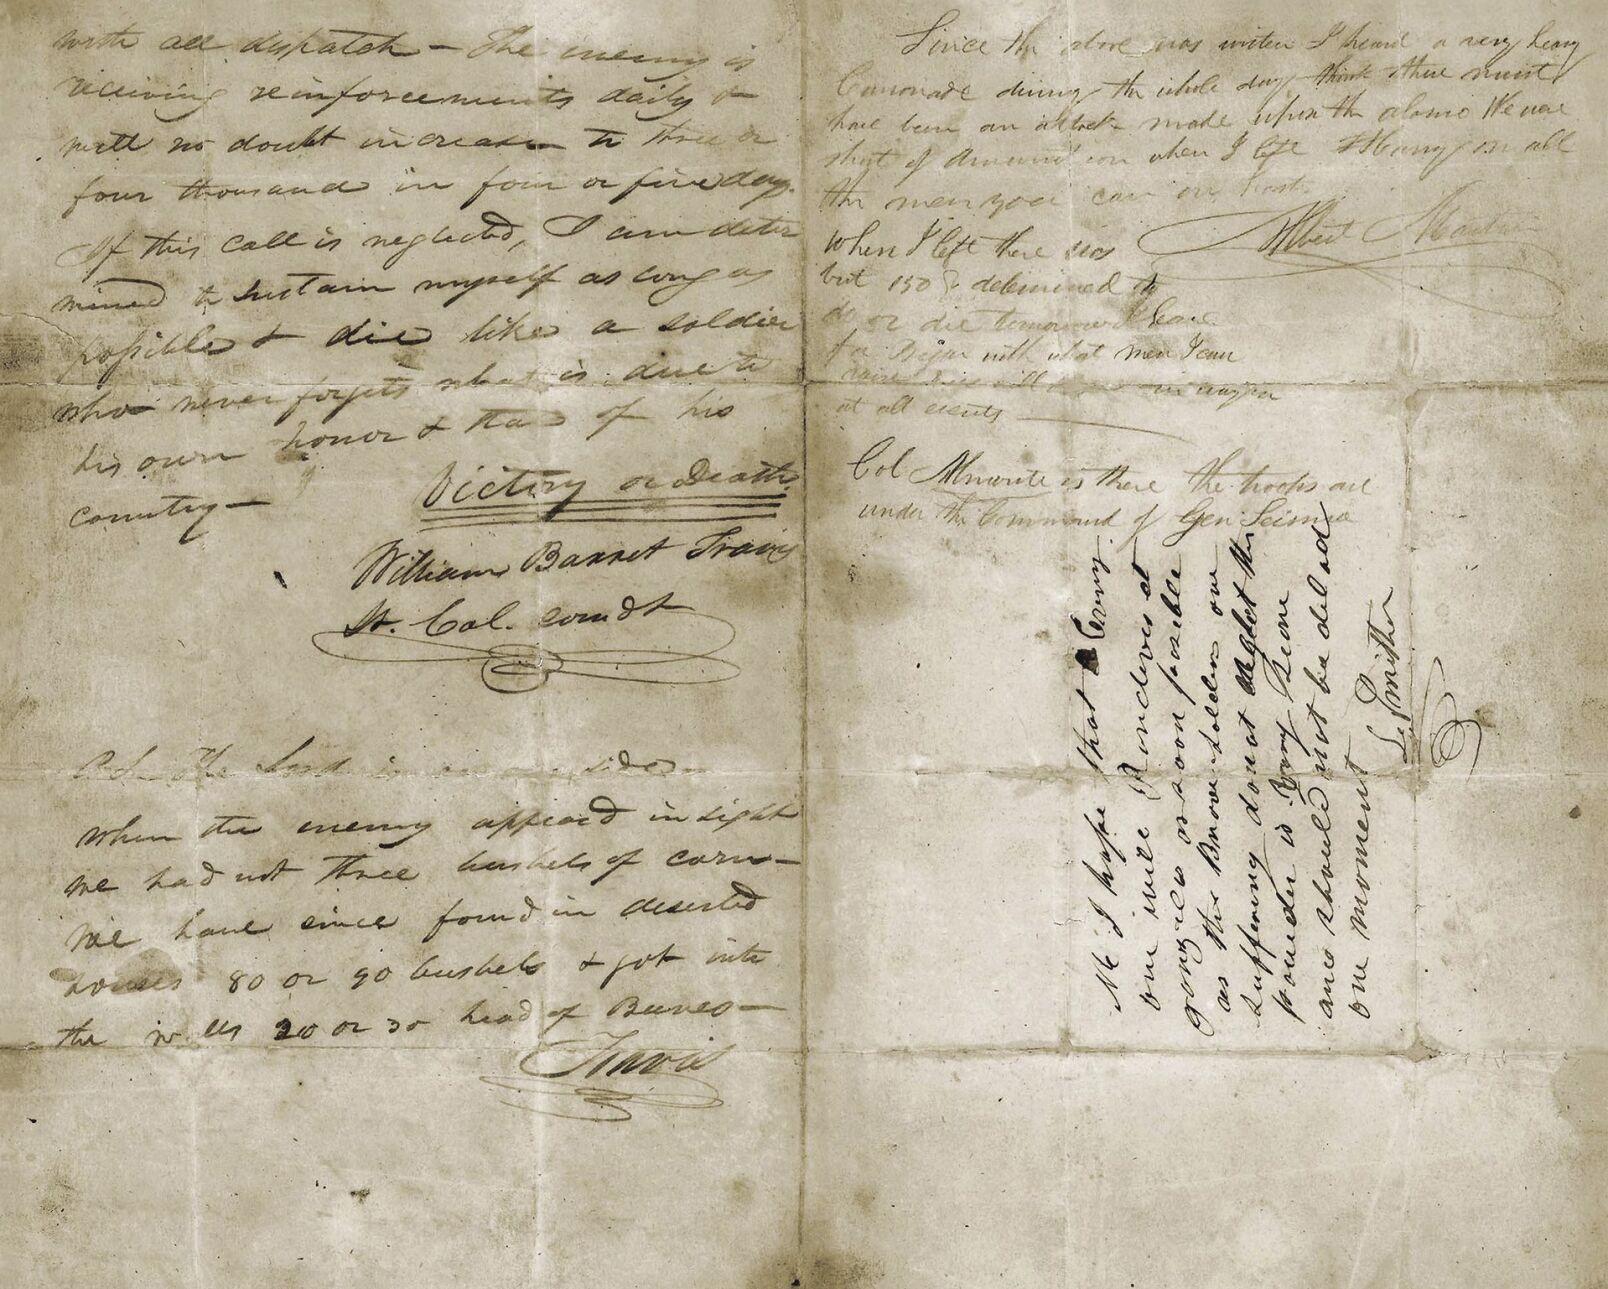 with all dispatch — The enemy is
receiving reinforcements daily &
will no doubt increase to three or
four thousand in four or five days.
If this call is neglected, I am deter
mined to sustain myself as long as
possible & die like a soldier
who never forgets what is due to
his own honor & that of his
country —
Victory or Death
William Barret Travis
Lt. Col. comdt
P.S. The Lord is on our side
When the enemy appeard in sight
we had not three bushels of corn —
We have since found in deserted
houses 80 or 90 bushels & got into
the walls 20 or 30 head of Beeves —
Travis
Since the above was writen I heard a very heavy
Cannonade during the whole day think there must
have been an attack made upon the alamo We were
short of Amunition when I left Hurry on all
the men you can in haste
Albert Martin
When I left there was
but 150 determined to
do or die tomorrow I leave
for Bejar with what men I can
raise at all events
Col Almonte is there the troops are
under the Command of Gen Seisma
Nb I hope that Every
one will Randeves at
gonzales as soon posible
as the Brave soldiers are
suffering do not neglect the
powder is very scarce
and should not be delad
one moment
L. Smither